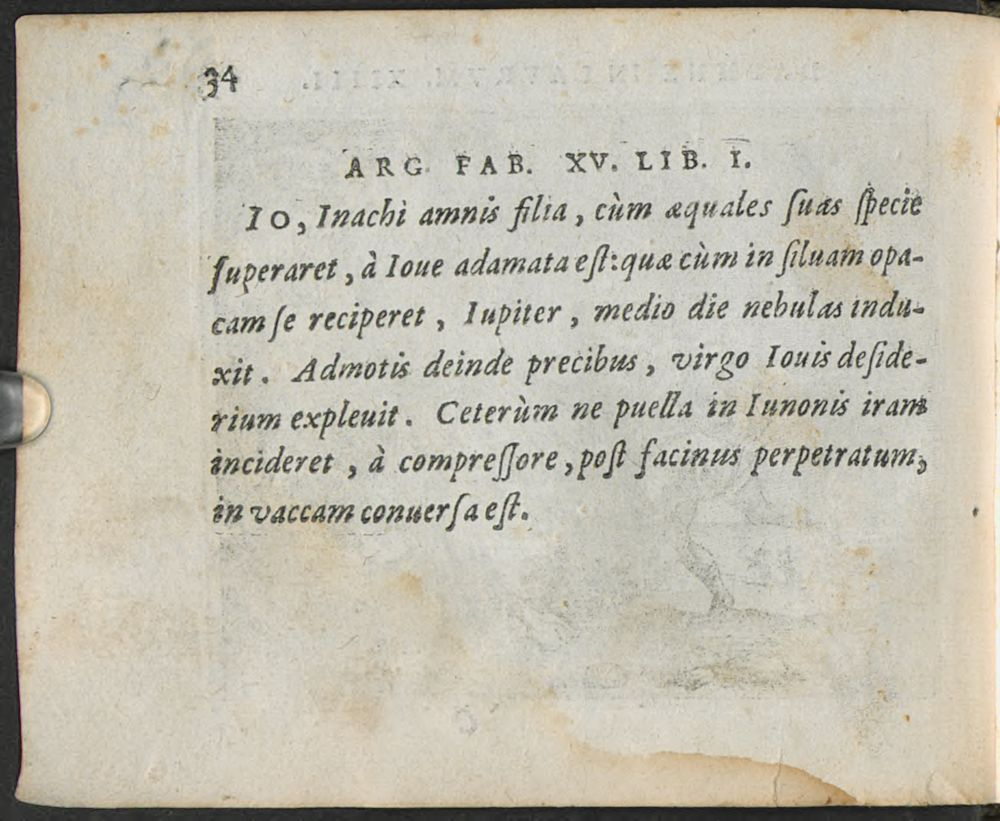 34
ARG. FAB. XV. LIB. I.
IO, Inachi amnis filia, cùm æquales ſuas ſpecie
ſuperaret, à Ioue adamata eſt: quæ cùm in ſiluam opa-
cam ſe reciperet, Iupiter, medio die nebulas indu-
xit. Admotis deinde precibus, virgo Iouis deſide-
rium expleuit. Ceterùm ne puella in Iunonis iram
incideret, à compreſſore, poſt facinus perpetratum,
in vaccam conuerſa eſt.